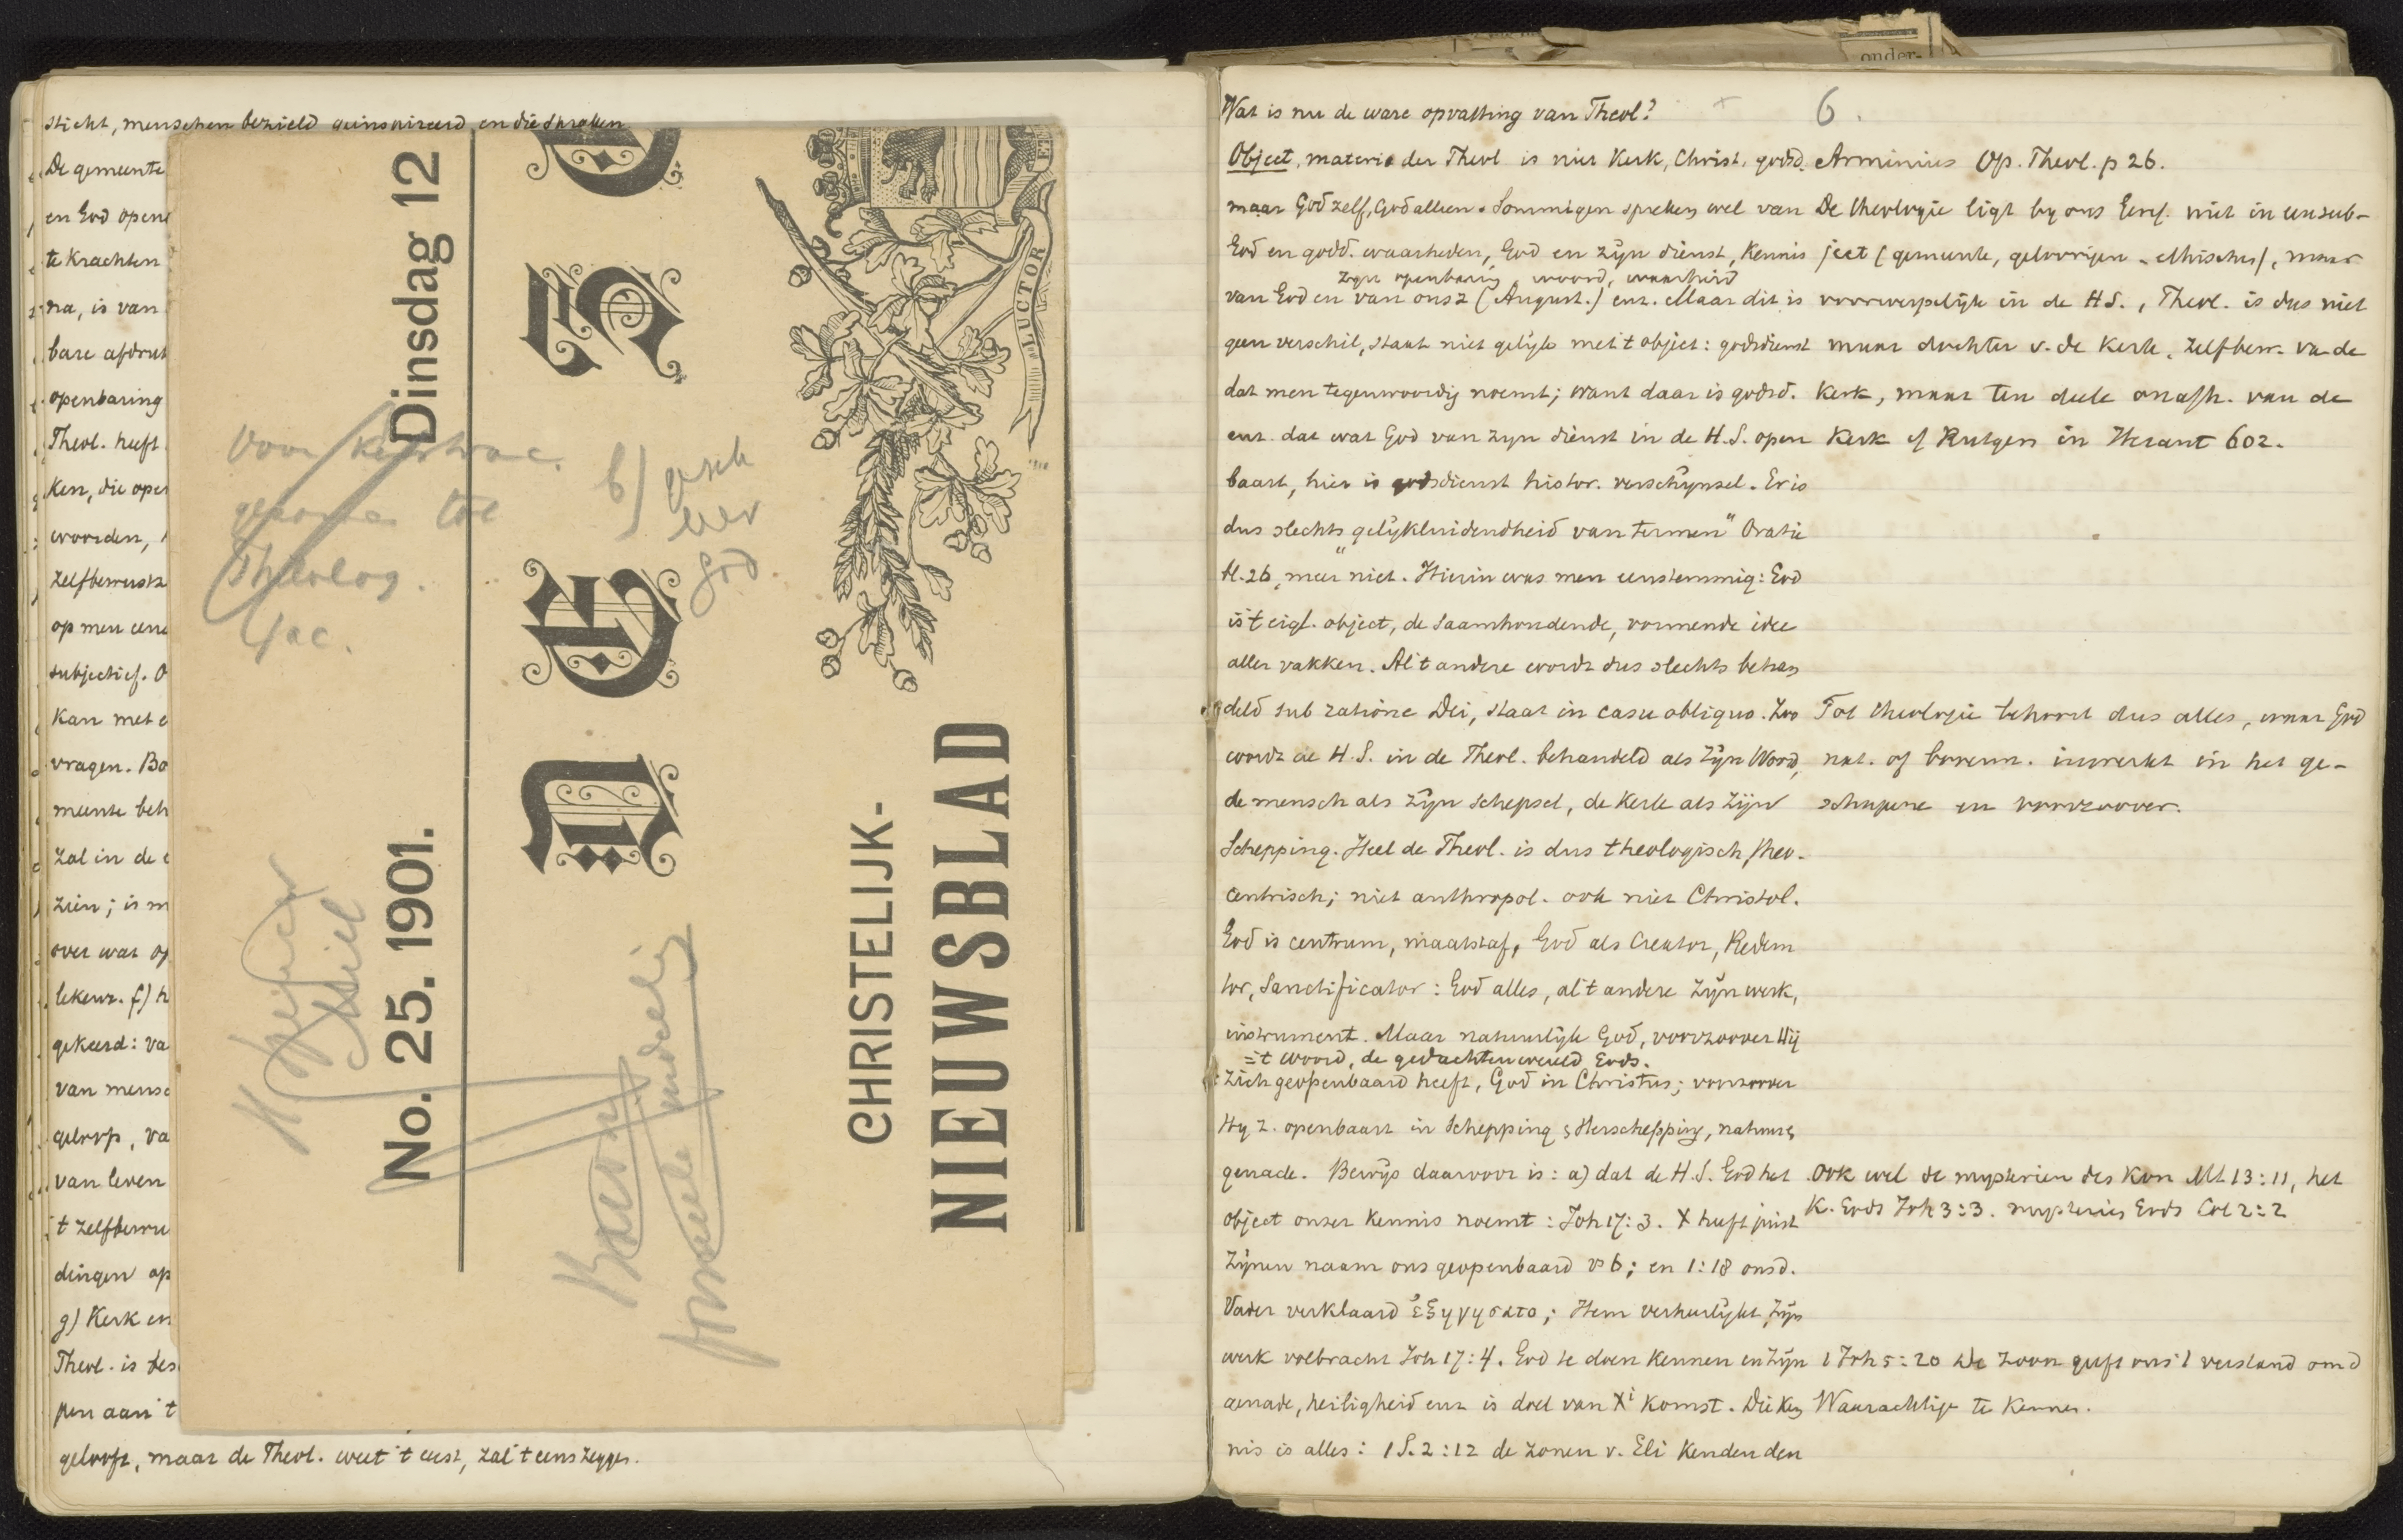 sticht, menschen bezield geinspireerd en die spraken
De gemeente
en God open
te krachten
na, is van
bare afdruk
openbaring
Theol. heeft
ken, die open
woorden,
zelfbewustz
op men een
subjectief. O
Kan met e
vragen. Bo
meente beh
zal in de
zien; is m
over wat op
lekenz. f) h
gekeerd: va
van mensc
geloof, va
van leven
't zelfbewu
dingen op
g) Kerk en
Theol. is des
pen aan 't
gelooft, maar de Theol. weet 't eerst, zal 't eens zeggen.
No. 25. 1901. Dinsdag 12
CHRISTELIJK-
NIEUWSBLAD
LUCTOR ET
voor
tot
Theolog.
fac.
b) gesch
over
god.
onder-
6.
Wat is nu de ware opvatting van Theol?
Object, materie der Theol is niet Kerk, Christ. godsd.
maar God zelf, God alleen. Sommigen spreken wel van
God en godd. waarheden, God en zijn dienst, Kennis
zijn openbaring woord, waarheid
van God en van onsz (August.) enz. Maar dit is
geen verschil, staat niet gelijk met 't object: godsdienst
dat men tegenwoordig noemt; want daar is godsd.
enz. dat wat God van zijn dienst in de H.S. open
baart, hier is godsdienst histor. verschijnsel. Er is
dus slechts "gelijkluidendheid van termen" Oratie
bl. 26, meer niet. Hierin was men eenstemmig: God
is 't eigl. object, de saamhoudende, vormende idee
aller vakken. Al 't andere wordt dus slechts behan
deld sub ratione Dei, staat in casu obliquo. Zoo
wordt de H.S. in de Theol. behandeld als Zijn Woord,
de mensch als Zijn schepsel, de Kerk als Zijn
Schepping. Heel de Theol. is dus theologisch, theo-
centrisch; niet anthropol. ook niet Christol.
God is centrum, maatstaf, God als Creator, Redem
tor, Sanctificator: God alles, al 't andere Zijn werk,
instrument. Maar natuurlijk God, voorzoover Hij
= 't woord, de gedachtenwereld Gods.
Zich geopenbaard heeft, God in Christus; voorzoover
Hij z. openbaart in Schepping & Herschepping, natuur &
genade. Bewijs daarvoor is: a) dat de H.S. God het
object onzer Kennis noemt: Joh 17:3. X heeft juist
Zijnen naam ons geopenbaard vs 6; en 1:18 ons d.
Vader verklaard ἐξηγησατο; Hem verheerlijkt, Zijn
werk volbracht Joh 17:4. God te doen Kennen en Zijn
genade, heiligheid enz is doel van Xi komst. Die Ken
nis is alles: 1 S. 2:12 de zonen v. Eli Kenden den
Arminius Op. Theol. p 26.
De theologie ligt by ons Geref. niet in een sub-
ject (gemeente, geloovigen - ethischen), maar
voorwerpelijk in de H.S., Theol. is dus niet
maar dochter v. de Kerk, zelfbew. van de
Kerk, maar ten deele onafh. van de
Kerk cf Rutgers in Heraut 602.
Tot theologie behoort dus alles, waar God
nat. of bovenn. inwerkt in het ge-
schapene en voorzoover.
Ook wel de mysterien des Kon Mt 13:11, het
K. Gods Joh 3:3. mysterie Gods Col 2:2
1 Joh 5:20 de Zoon geeft ons 't verstand om d
Waarachtige te Kennen.